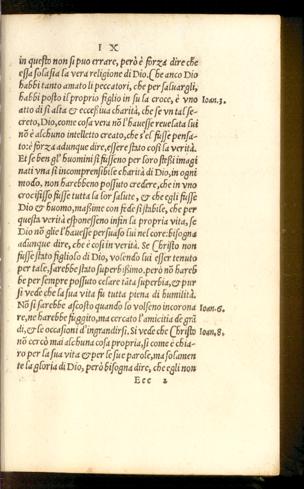 I X
in questo non si puo errare, però è forza dire che
essa sola sia la vera religione di Dio. Che anco Dio
habbi tanto amato li peccatori, che per saluargli,
habbi posto il proprio figlio in su la croce, è vno
atto di sì alta & eccessiua charità, che se vn tal se-
creto, Dio, come cosa vera nō l'hauesse reuelata lui
nō è alchuno intelletto creato, che s'el fusse pensa-
to: è forza adunque dire, essere stato così la verità.
Et se ben gl'huomini si fusseno per loro steßi imagi
nati vna sì incomprensibile charità di Dio, in ogni
modo. non harebbeno possuto credere, che in vno
crocifisso fusse tutta la lor salute, & che egli fusse
Dio & huomo, maßime con fede sì stabile, che per
questa verità esponesseno infin la propria vita, se
Dio nō glie l'hauesse persuaso lui nel core: bisogna
adunque dire, che è così in verità. Se Christo non
fusse stato figliolo di Dio, volendo lui esser tenuto
per tale, sarebbe stato superbißimo, però nō hareb
be per sempre possuto celare tāta superbia, & pur
si vede che la sua vita fu tutta piena di humiltà.
Nō si sarebbe ascosto quando lo volseno incorona
re, ne harebbe fuggito, ma cercato l'amicitia de grā
di, & le occasioni d'ingrandirsi. Si vede che Christo
nō cercò mai alchuna cosa propria, sì come è chia-
ro per la sua vita & per le sue parole, ma solamen
te la gloria di Dio, però bisogna dire, che egli non
Ioan.3.
Ioan.6.
Ioan.8.
Eee 2